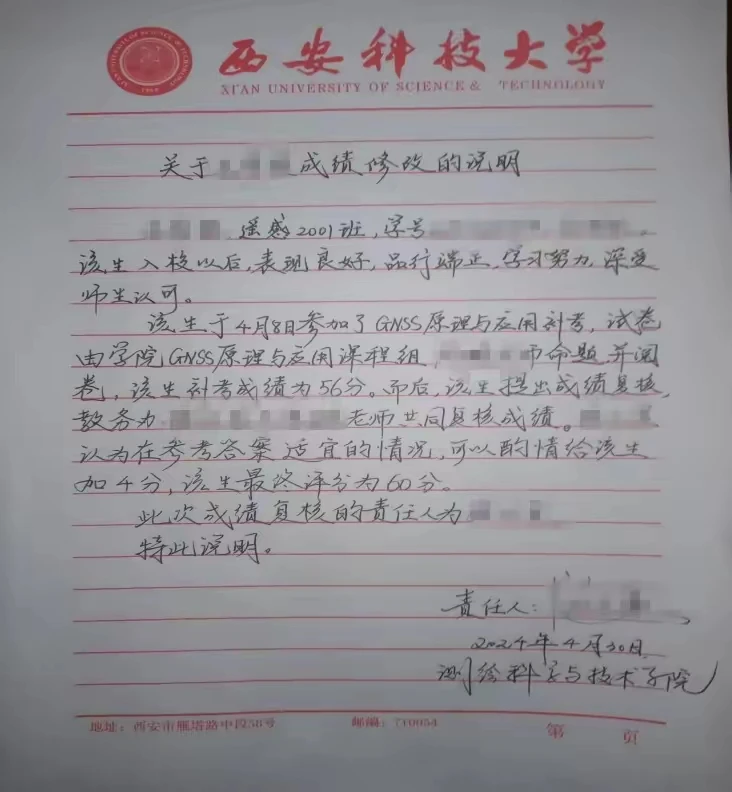 西安科技大学
XI'AN UNIVERSITY OF SCIENCE & TECHNOLOGY
关于 成绩修改的说明
遥感2001班,学号 。
该生入校以后,表现良好,品行端正,学习努力,深受
师生认可。
该生于4月8日参加了GNSS原理与应用补考,试卷
由学院GNSS原理与应用课程组, 命题并阅
卷,该生补考成绩为56分。而后,该生提出成绩复核,
教务办 老师共同复核成绩。
认为在参考答案适宜的情况,可以酌情给该生
加4分,该生最终评分为60分。
此次成绩复核的责任人为
特此说明。
责任人:
2024年4月30日
测绘科学与技术学院
地址:西安市雁塔路中段58号 邮编:710054 第 页